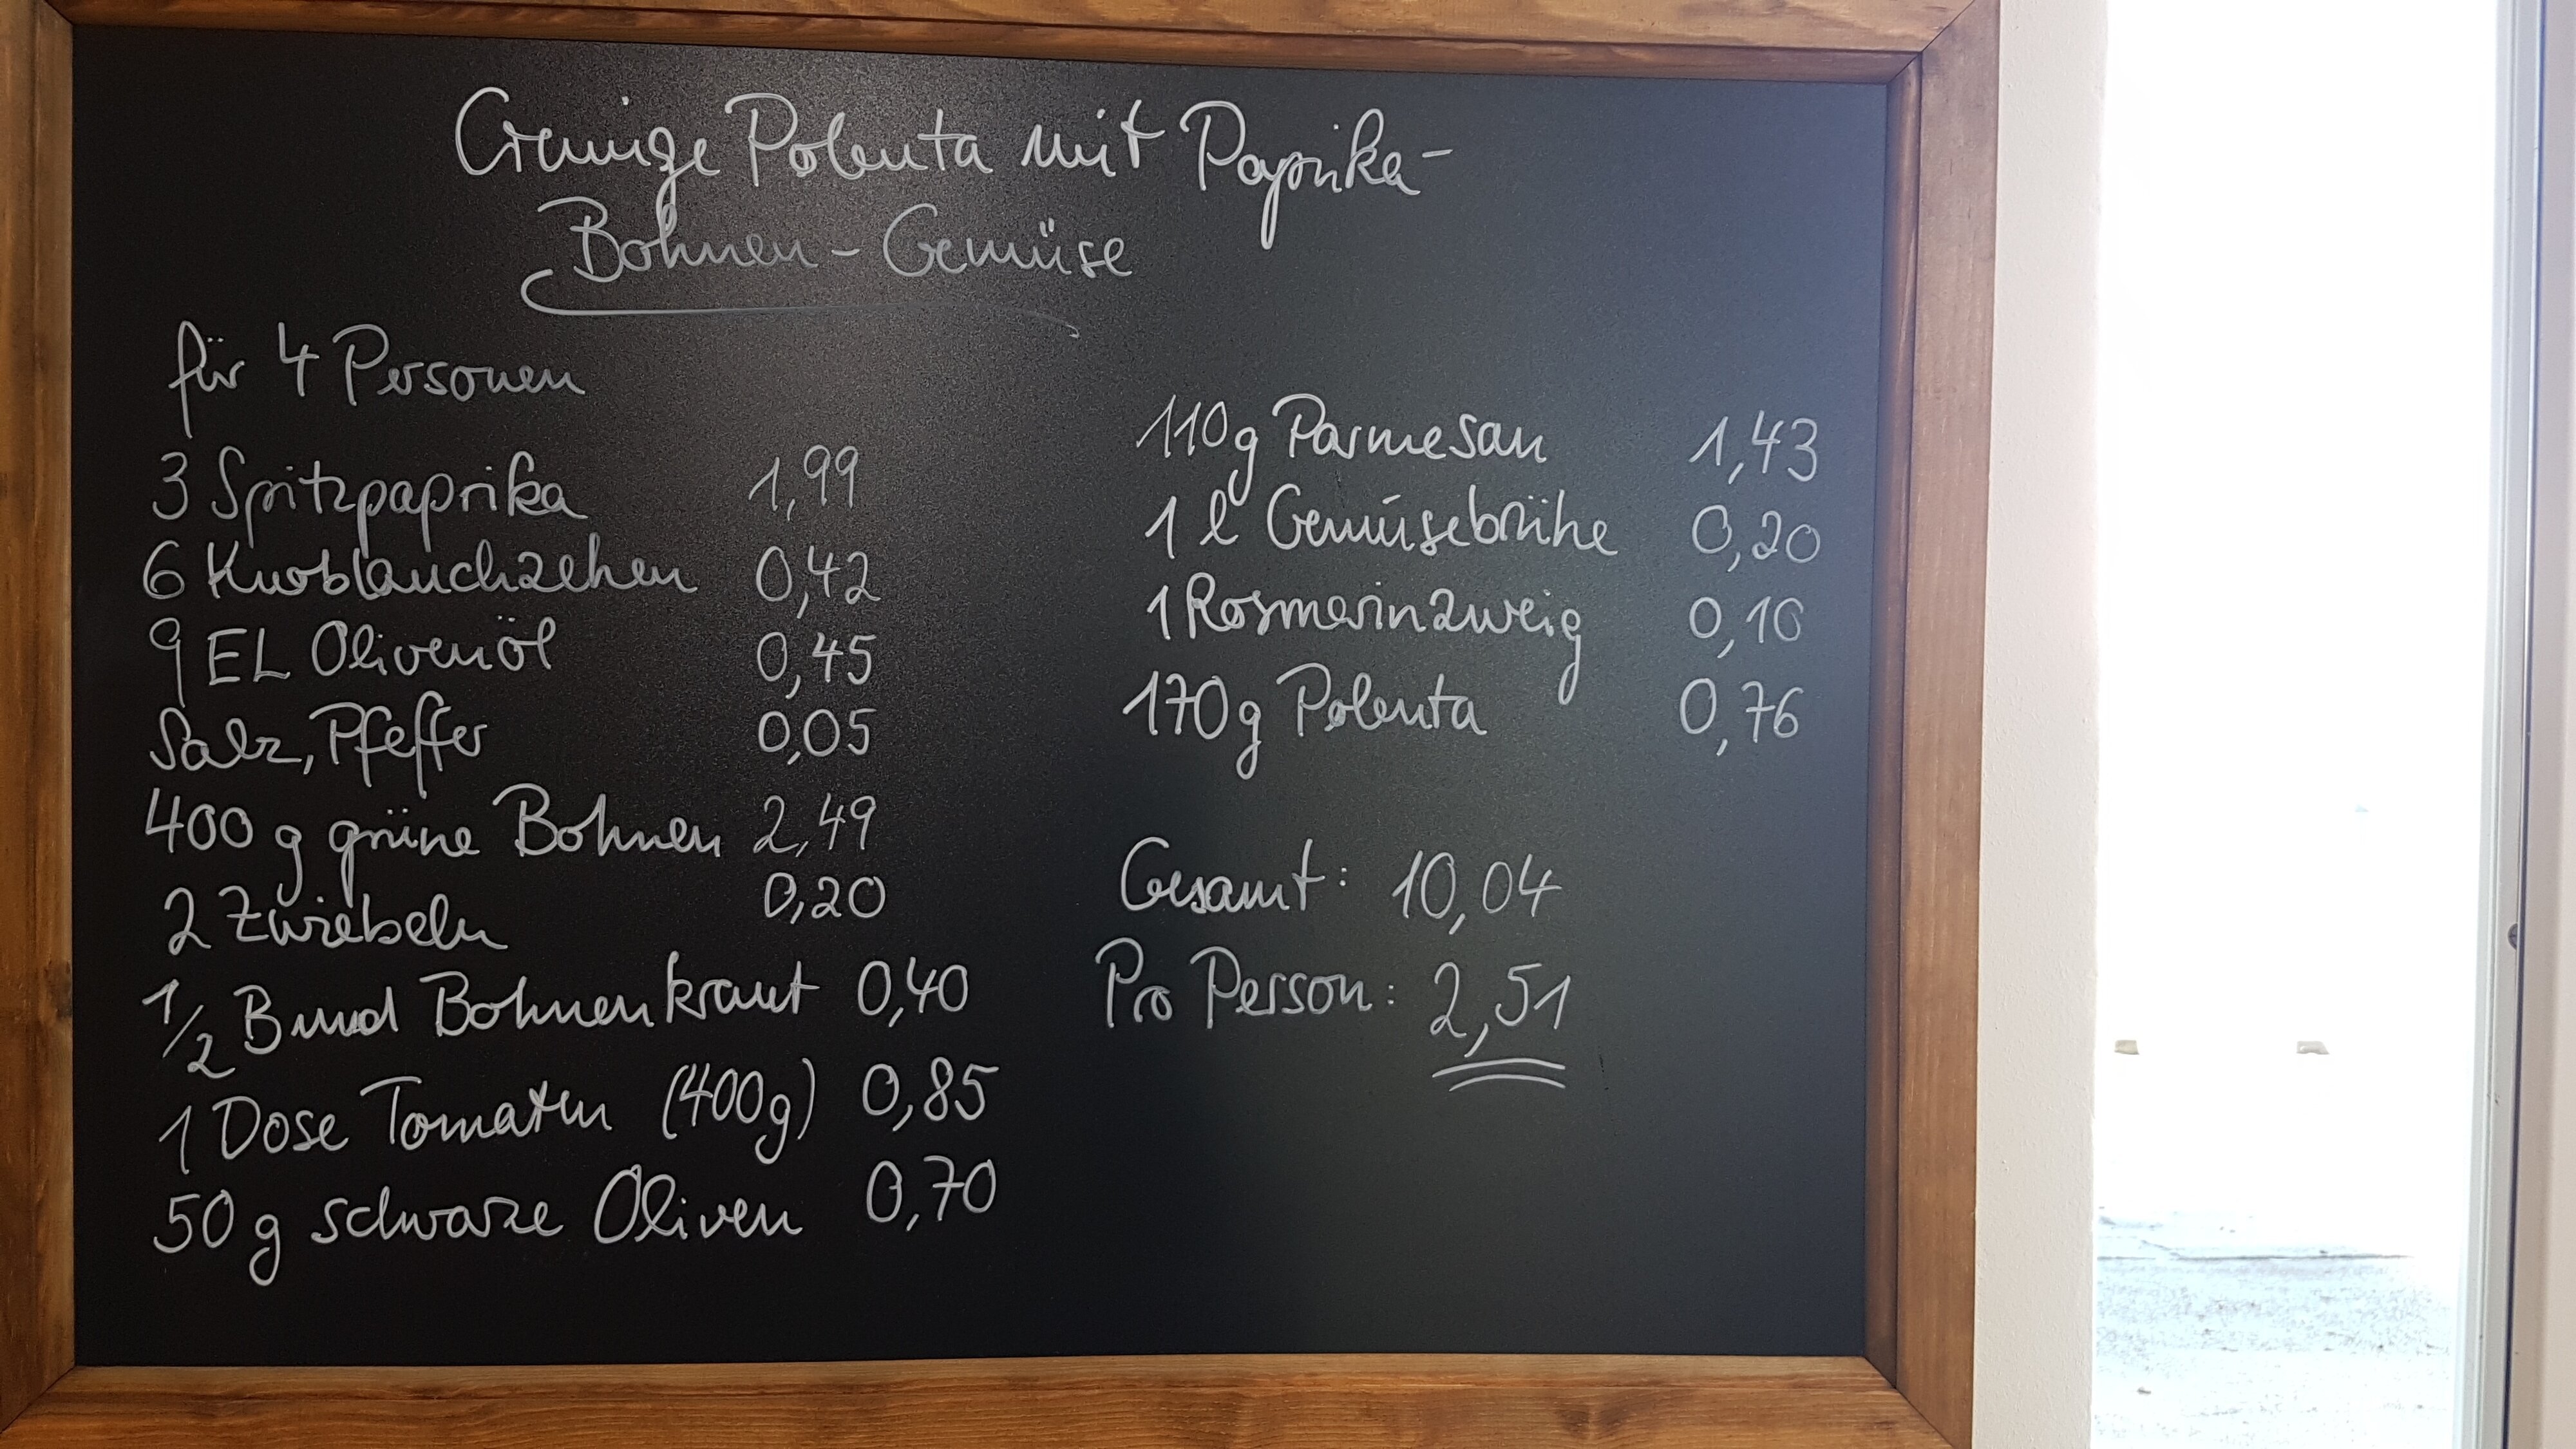 Cremige Polenta mit Paprika-
Bohnen-Gemüse
für 4 Personen
3 Spitzpaprika 1,99
6 Knoblauchzehen 0,42
9 EL Olivenöl 0,45
Salz, Pfeffer 0,05
400 g grüne Bohnen 2,49
2 Zwiebeln 0,20
1/2 Bund Bohnenkraut 0,40
1 Dose Tomaten (400g) 0,85
50 g schwarze Oliven 0,70
110g Parmesan 1,43
1 l Gemüsebrühe 0,20
1 Rosmarinzweig 0,10
170g Polenta 0,76
Gesamt: 10,04
Pro Person: 2,51